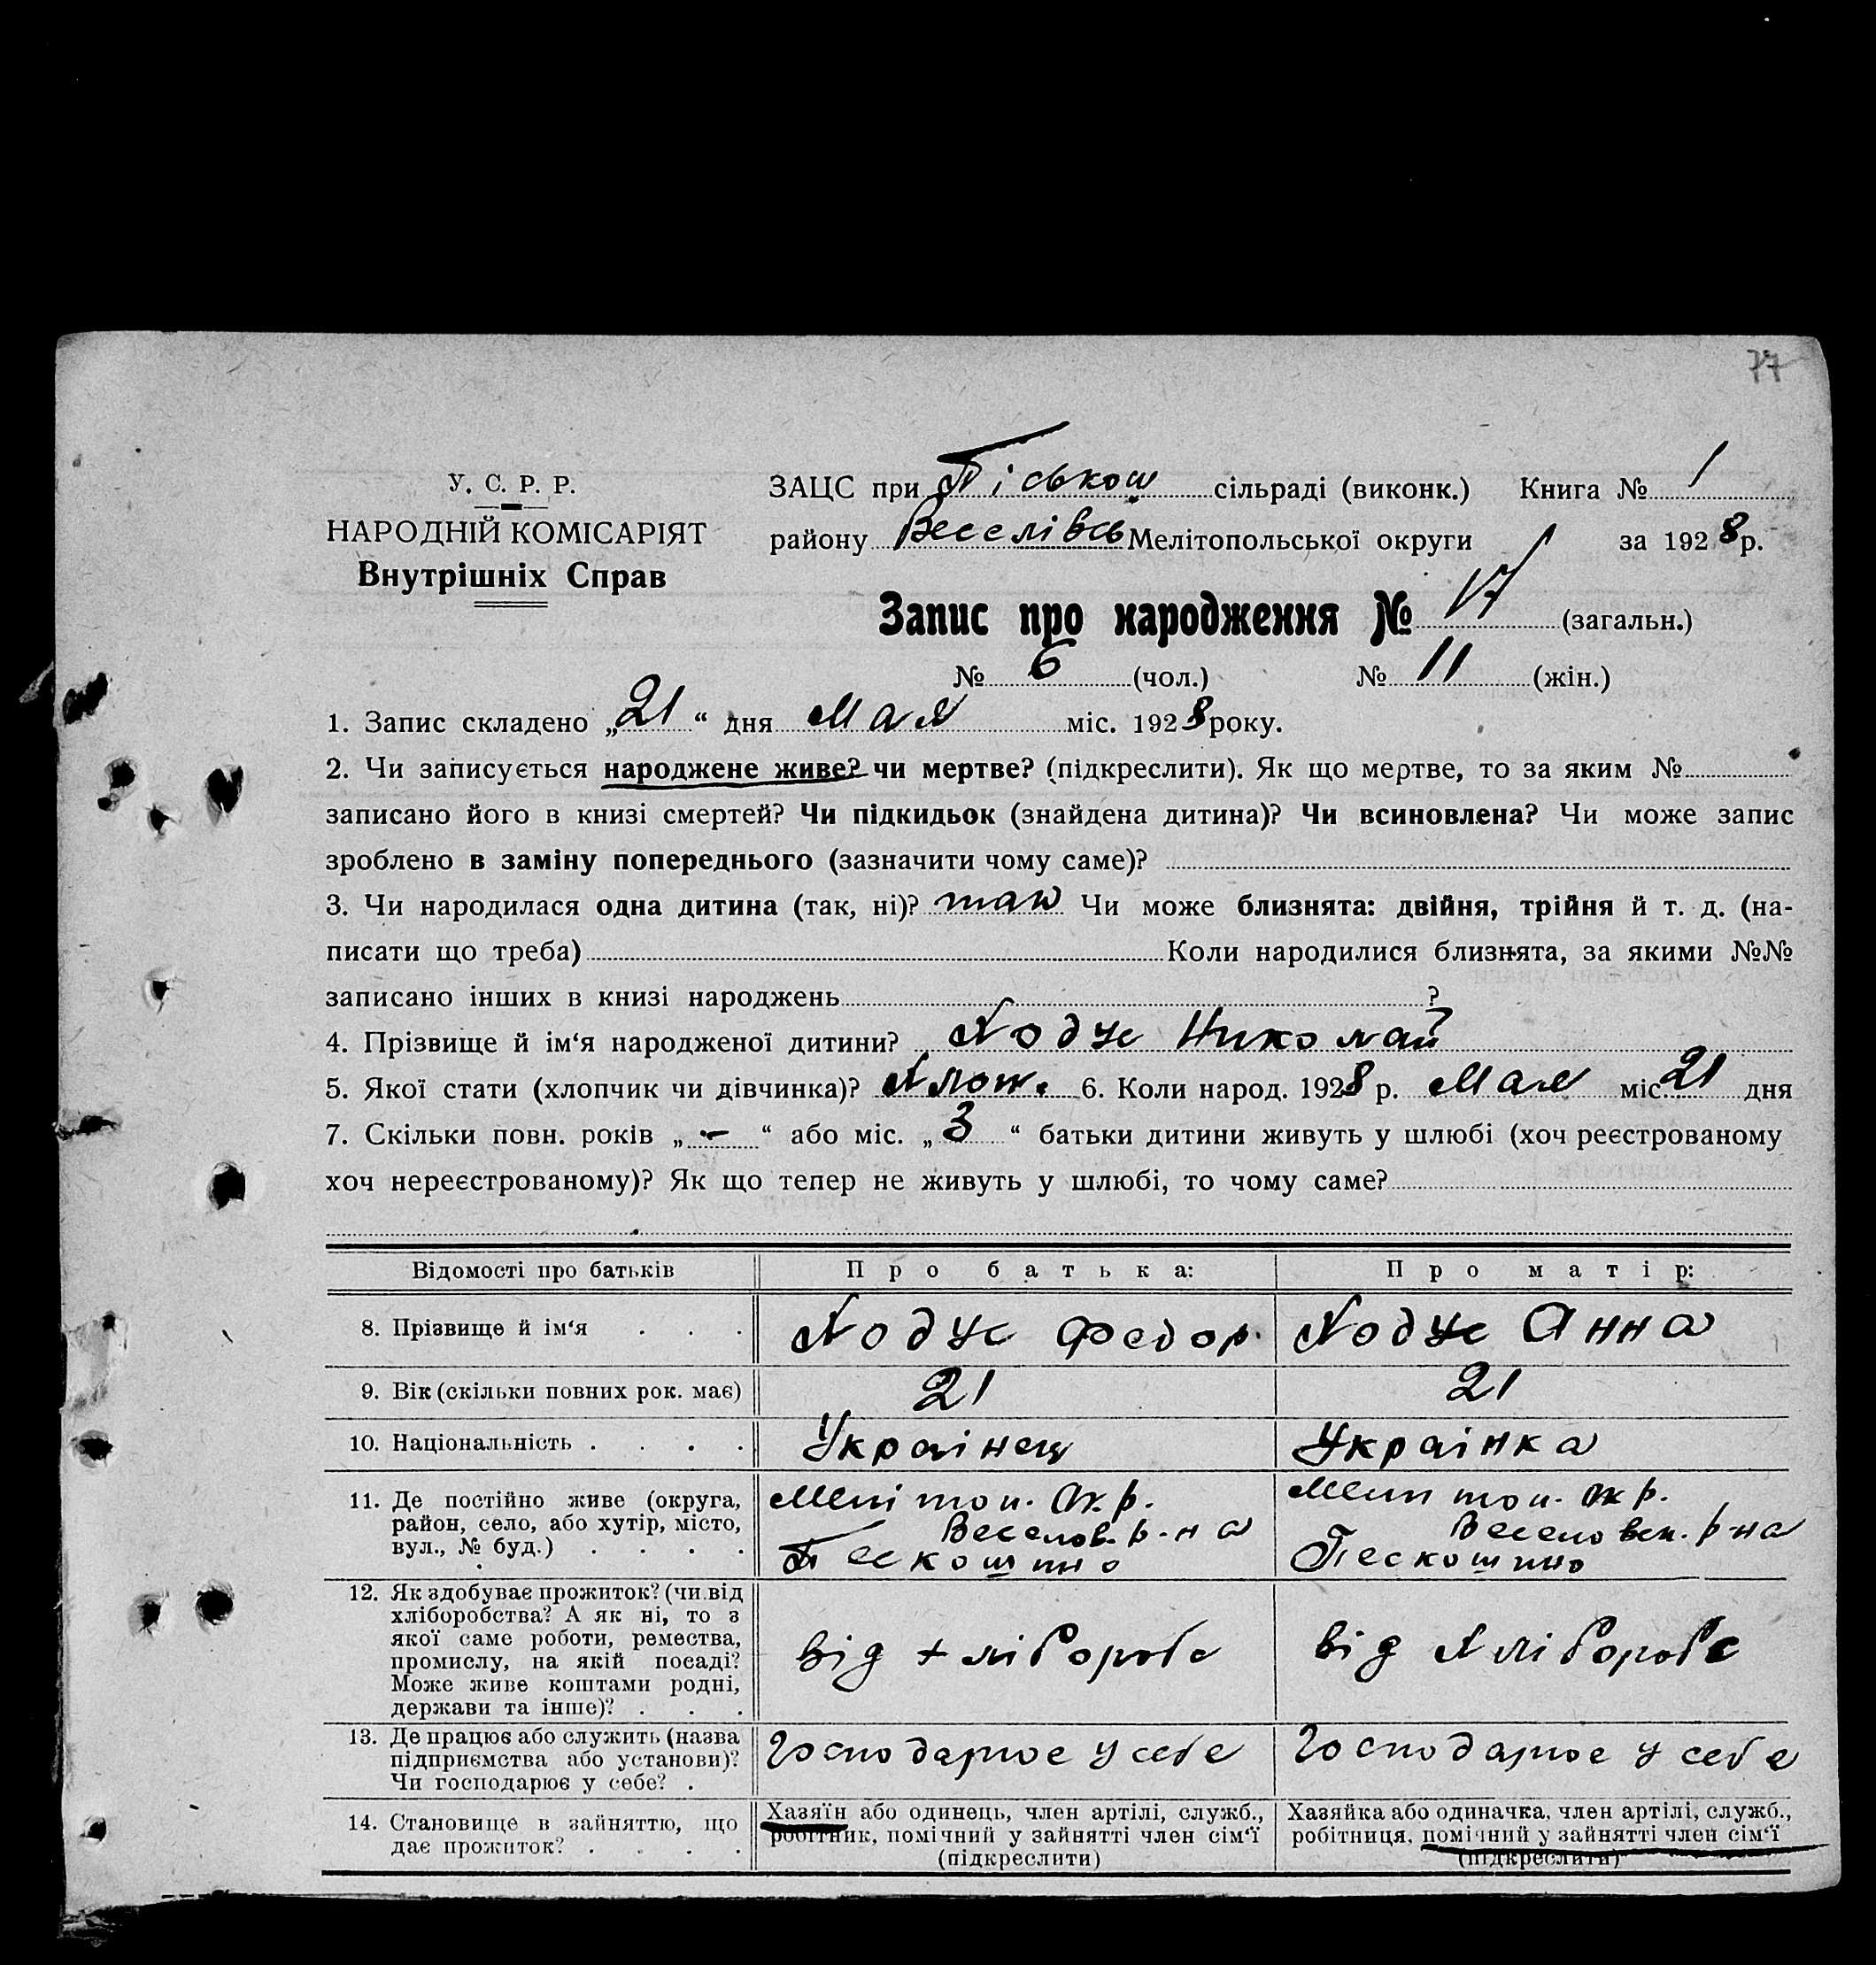 77
У. С. Р. Р.
НАРОДНІЙ КОМІСАРІЯТ
Внутрішніх Справ
ЗАЦС при Піськош сільраді (виконк.) Книга № 1
району Веселівсь Мелітопольської округи за 1928 р.
Запис про народження № 17 (загальн.)
№ 6 (чол.) № 11 (жін.)
1. Запис складено „21“ дня Мая міс. 1928 року.
2. Чи записується народжене живе? чи мертве? (підкреслити). Як що мертве, то за яким №
записано його в книзі смертей? Чи підкидьок (знайдена дитина)? Чи всиновлена? Чи може запис
зроблено в заміну попереднього (зазначити чому саме)?
3. Чи народилася одна дитина (так, ні)? так Чи може близнята: двійня, трійня й т. д. (на-
писати що треба) Коли народилися близнята, за якими №№
записано інших в книзі народжень ?
4. Прізвище й ім‘я народженої дитини? Ходус Николай
5. Якої стати (хлопчик чи дівчинка)? Хлоп. 6. Коли народ. 1928 р. Мая міс. 21 дня
7. Скільки повн. років „-“ або міс. „3“ батьки дитини живуть у шлюбі (хоч реєстрованому
хоч нереєстрованому)? Як що тепер не живуть у шлюбі, то чому саме?
Відомості про батьків Про батька: Про матір:
8. Прізвище й ім‘я . . . Ходус Федор. Ходус Анна
9. Вік (скільки повних рок. має) 21 21
10. Національність . . . . Украінец Украінка
11. Де постійно живе (округа,
район, село, або хутір, місто,
вул., № буд.) . . . .
МеліТоп. Окр.
Веселов. р-на
Пескошино
Мелитоп. Окр.
Веселовск. р-на
Пескошино
12. Як здобуває прожиток? (чи від
хліборобства? А як ні, то з
якої саме роботи, ремества,
промислу, на якій посаді?
Може живе коштами родні,
держави та інше)? . . .
від хлібороб
від хлібороб
13. Де працює або служить (назва
підприємства або установи)?
Чи господарює у себе? .
Господарює у себе
Господарює у себе
14. Становище в зайняттю, що
дає прожиток? . . . .
Хазяїн або одинець, член артілі, служб.,
робітник, помічний у зайнятті член сім‘ї
(підкреслити)
Хазяйка або одиначка, член артілі, служб.,
робітниця, помічний у зайнятті член сім‘ї
(підкреслити)